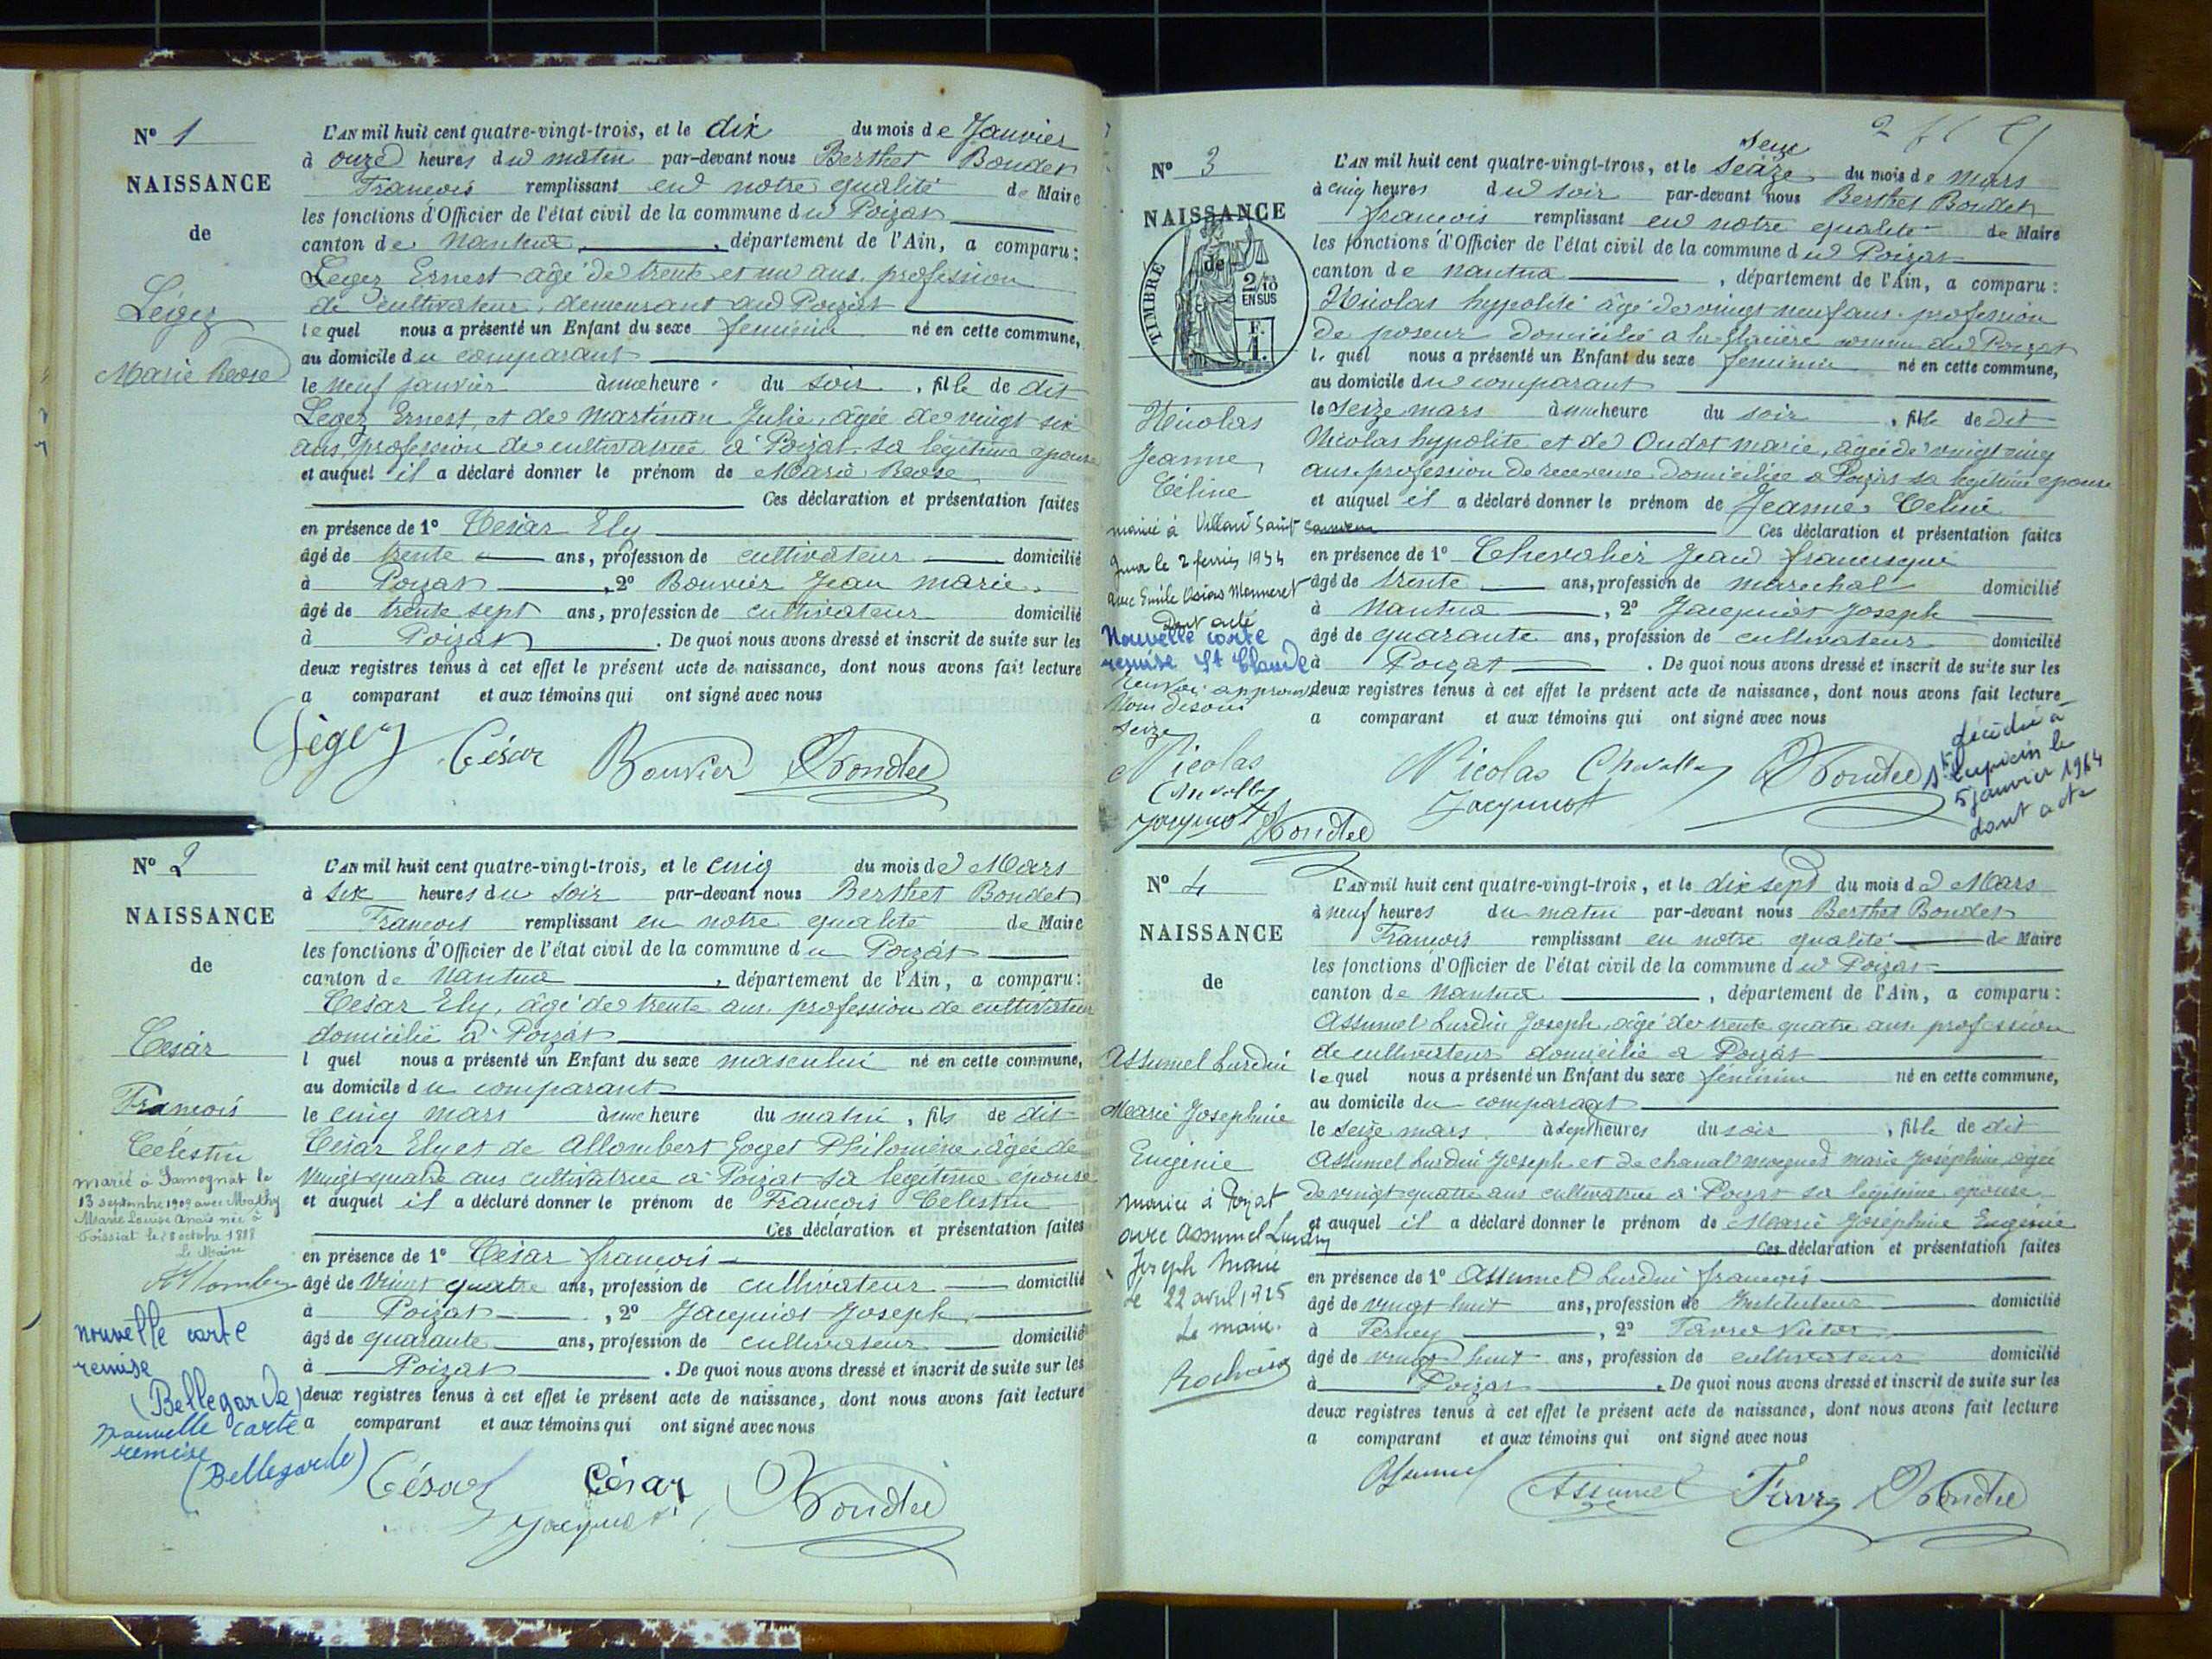 N° 1
NAISSANCE
de
Léger
Marie Rose
L'AN mil huit cent quatre-vingt-trois, et le dix du mois de Janvier
à onze heures du matin par-devant nous Berthet Bondet
François remplissant en notre qualité de Maire
les fonctions d'Officier de l'état civil de la commune du Poizat
canton de Nantua, département de l'Ain, a comparu :
Leger Ernest âgé de trente et un ans. profession
de cultivateur, demeurant au Poizat
lequel nous a présenté un Enfant du sexe feminin né en cette commune,
au domicile du comparant
le neuf janvier à une heure du soir, fille de dit
Leger Ernest, et de Martinan Julie, âgée de vingt six
ans, profession de cultivatrice à Poizat. sa légitime epouse
et auquel il a déclaré donner le prénom de Marie Rose
Ces déclaration et présentation faites
en présence de 1° Cesar Ely
âgé de trente ans, profession de cultivateur domicilié
à Poizat, 2° Bouvier Jean Marie,
âgé de trente sept ans, profession de cultivateur domicilié
à Poizat. De quoi nous avons dressé et inscrit de suite sur les
deux registres tenus à cet effet le présent acte de naissance, dont nous avons fait lecture
a comparant et aux témoins qui ont signé avec nous
Léger César Bouvier Bondet
N° 2
NAISSANCE
de
Cesar
Francois
Célestin
marié à Samognat le
13 septembre 1909 avec Mathy
Marie Louise Anaïs née à
Le Maire
nouvelle carte
remise
(Bellegarde)
nouvelle carte
remise
(Bellegarde)
L'AN mil huit cent quatre-vingt-trois, et le cinq du mois de Mars
à six heures du soir par-devant nous Berthet Bondet
Francois remplissant en notre qualité de Maire
les fonctions d'Officier de l'état civil de la commune du Poizat
canton de Nantua, département de l'Ain, a comparu :
Cesar Ely, âgé de trente ans, profession de cultivateur
domicilié à Poizat
l quel nous a présenté un Enfant du sexe masculin né en cette commune,
au domicile du comparant
le cinq mars à une heure du matin, fils de dit
César Ely et de Allombert Goget Philomène, âgée de
vingt quatre ans cultivatrice à Poizat sa legitime épouse
et auquel il a déclaré donner le prénom de François Celestin
Ces déclaration et présentation faites
en présence de 1° César françois
âgé de vingt quatre ans, profession de cultivateur domicilié
à Poizat, 2° Jacquiot Joseph
âgé de quarante ans, profession de cultivateur domicilié
à Poizat. De quoi nous avons dressé et inscrit de suite sur les
deux registres tenus à cet effet le présent acte de naissance, dont nous avons fait lecture
a comparant et aux témoins qui ont signé avec nous
César César Bondet
Jacquiot
N° 3
NAISSANCE
de
TIMBRE
2/10
EN SUS
F.
1.
Nicolas
Jeanne
Céline
mariée à Villard Saint Sauveur
Jura le 2 février 1934
avec Emile Osias Monneret
Dont acte
Nouvelle carte
remise St Claude
seize
Nicolas
Jacquiot Bondet
seize
L'AN mil huit cent quatre-vingt-trois, et le seize du mois de mars
à cinq heures du soir par-devant nous Berthet Bondet
françois remplissant en notre qualité de Maire
les fonctions d'Officier de l'état civil de la commune du Poizat
canton de Nantua, département de l'Ain, a comparu :
Nicolas hypolite âgé de vingt neuf ans. profession
de poseur domicilié a la Glacière commune du Poizat
l quel nous a présenté un Enfant du sexe feminin né en cette commune,
au domicile du comparant
le seize mars à une heure du soir, fille de dit
Nicolas hypolite et de Oudot marie, âgée de vingt cinq
ans. profession de receveuse domiciliée a Poizat sa legitime epouse
et auquel il a déclaré donner le prénom de Jeanne Celine
Ces déclaration et présentation faites
en présence de 1° Chevalier Jean francisque
âgé de trente ans, profession de marechal domicilié
à Nantua, 2° Jacquiot Joseph
âgé de quarante ans, profession de cultivateur domicilié
à Poizat. De quoi nous avons dressé et inscrit de suite sur les
deux registres tenus à cet effet le présent acte de naissance, dont nous avons fait lecture
a comparant et aux témoins qui ont signé avec nous
Nicolas Bondet
Jacquiot
décédée à
St Lupicin le
5 janvier 1964
dont acte
N° 4
NAISSANCE
de
Assumel Lurdin
Marie Josephine
Eugénie
mariée à Poizat
avec Assumel Lurdin
Joseph Marie
le 22 avril 1925
Le maire.
L'AN mil huit cent quatre-vingt-trois, et le dix sept du mois de Mars
à neuf heures du matin par-devant nous Berthet Bondet
François remplissant en notre qualité de Maire
les fonctions d'Officier de l'état civil de la commune du Poizat
canton de Nantua, département de l'Ain, a comparu :
Assumel Lurdin Joseph, âgé de trente quatre ans profession
de cultivateur domicilié a Poizat
lequel nous a présenté un Enfant du sexe féminin né en cette commune,
au domicile du comparant
le seize mars à sept heures du soir, fille de dit
Assumel Lurdin Joseph et de marie Joséphine âgée
de vingt quatre ans cultivatrice a Poizat sa légitime epouse
et auquel il a déclaré donner le prénom de Marie Joséphine Eugénie
Ces déclaration et présentation faites
en présence de 1° Assumel Lurdin françois
âgé de vingt huit ans, profession de Instituteur domicilié
à, 2° Favre Victor
âgé de vingt huit ans, profession de cultivateur domicilié
à Poizat. De quoi nous avons dressé et inscrit de suite sur les
deux registres tenus à cet effet le présent acte de naissance, dont nous avons fait lecture
a comparant et aux témoins qui ont signé avec nous
Assumel Assumel Favre Bondet